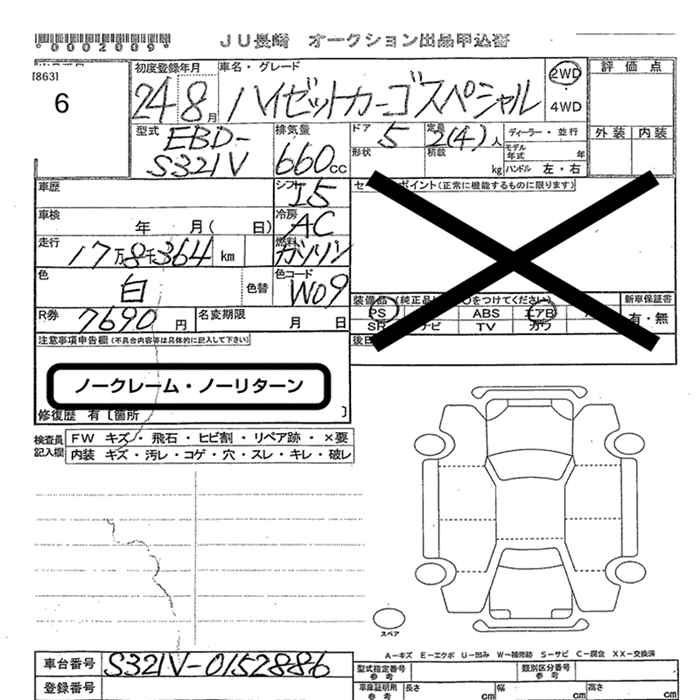 *0002009*
JU長崎 オークション出品申込書
[863]
6
初度登録年月
24年8月
車名・グレード
ハイゼットカーゴスペシャル
2WD
4WD
評価点
外装 内装
型式
EBD-
S321V
排気量
660cc
ドア
5
定員
2(4)人
形状
積載
kg
ディーラー・並行
モデル年式 年
ハンドル 左・右
車歴
シフト
I5
車検
年 月( 日)
冷房
AC
走行
17万8千364km
燃料
ガソリン
色
白
色替
色コード
W09
R券
7690円
名変期限
月 日
ポイント(正常に機能するものに限ります)
装備品
PS
ABS
エアB
SR
ナビ
TV
カワ
新車保証書
有・無
注意事項申告欄(不具合内容等は具体的に記入して下さい)
ノークレーム・ノーリターン
修復歴 有〔箇所 〕
検査員記入欄
FW キズ・飛石・ヒビ割・リペア跡・×要
内装 キズ・汚レ・コゲ・穴・スレ・キレ・破レ
スペア
A-キズ E-エクボ U-凹み W-補修跡 S-サビ C-腐食 XX-交換済
車台番号
S321V-0152886
登録番号
型式指定番号
参考
類別区分番号
参考
車庫証明用
参考
長さ cm
幅 cm
高さ cm